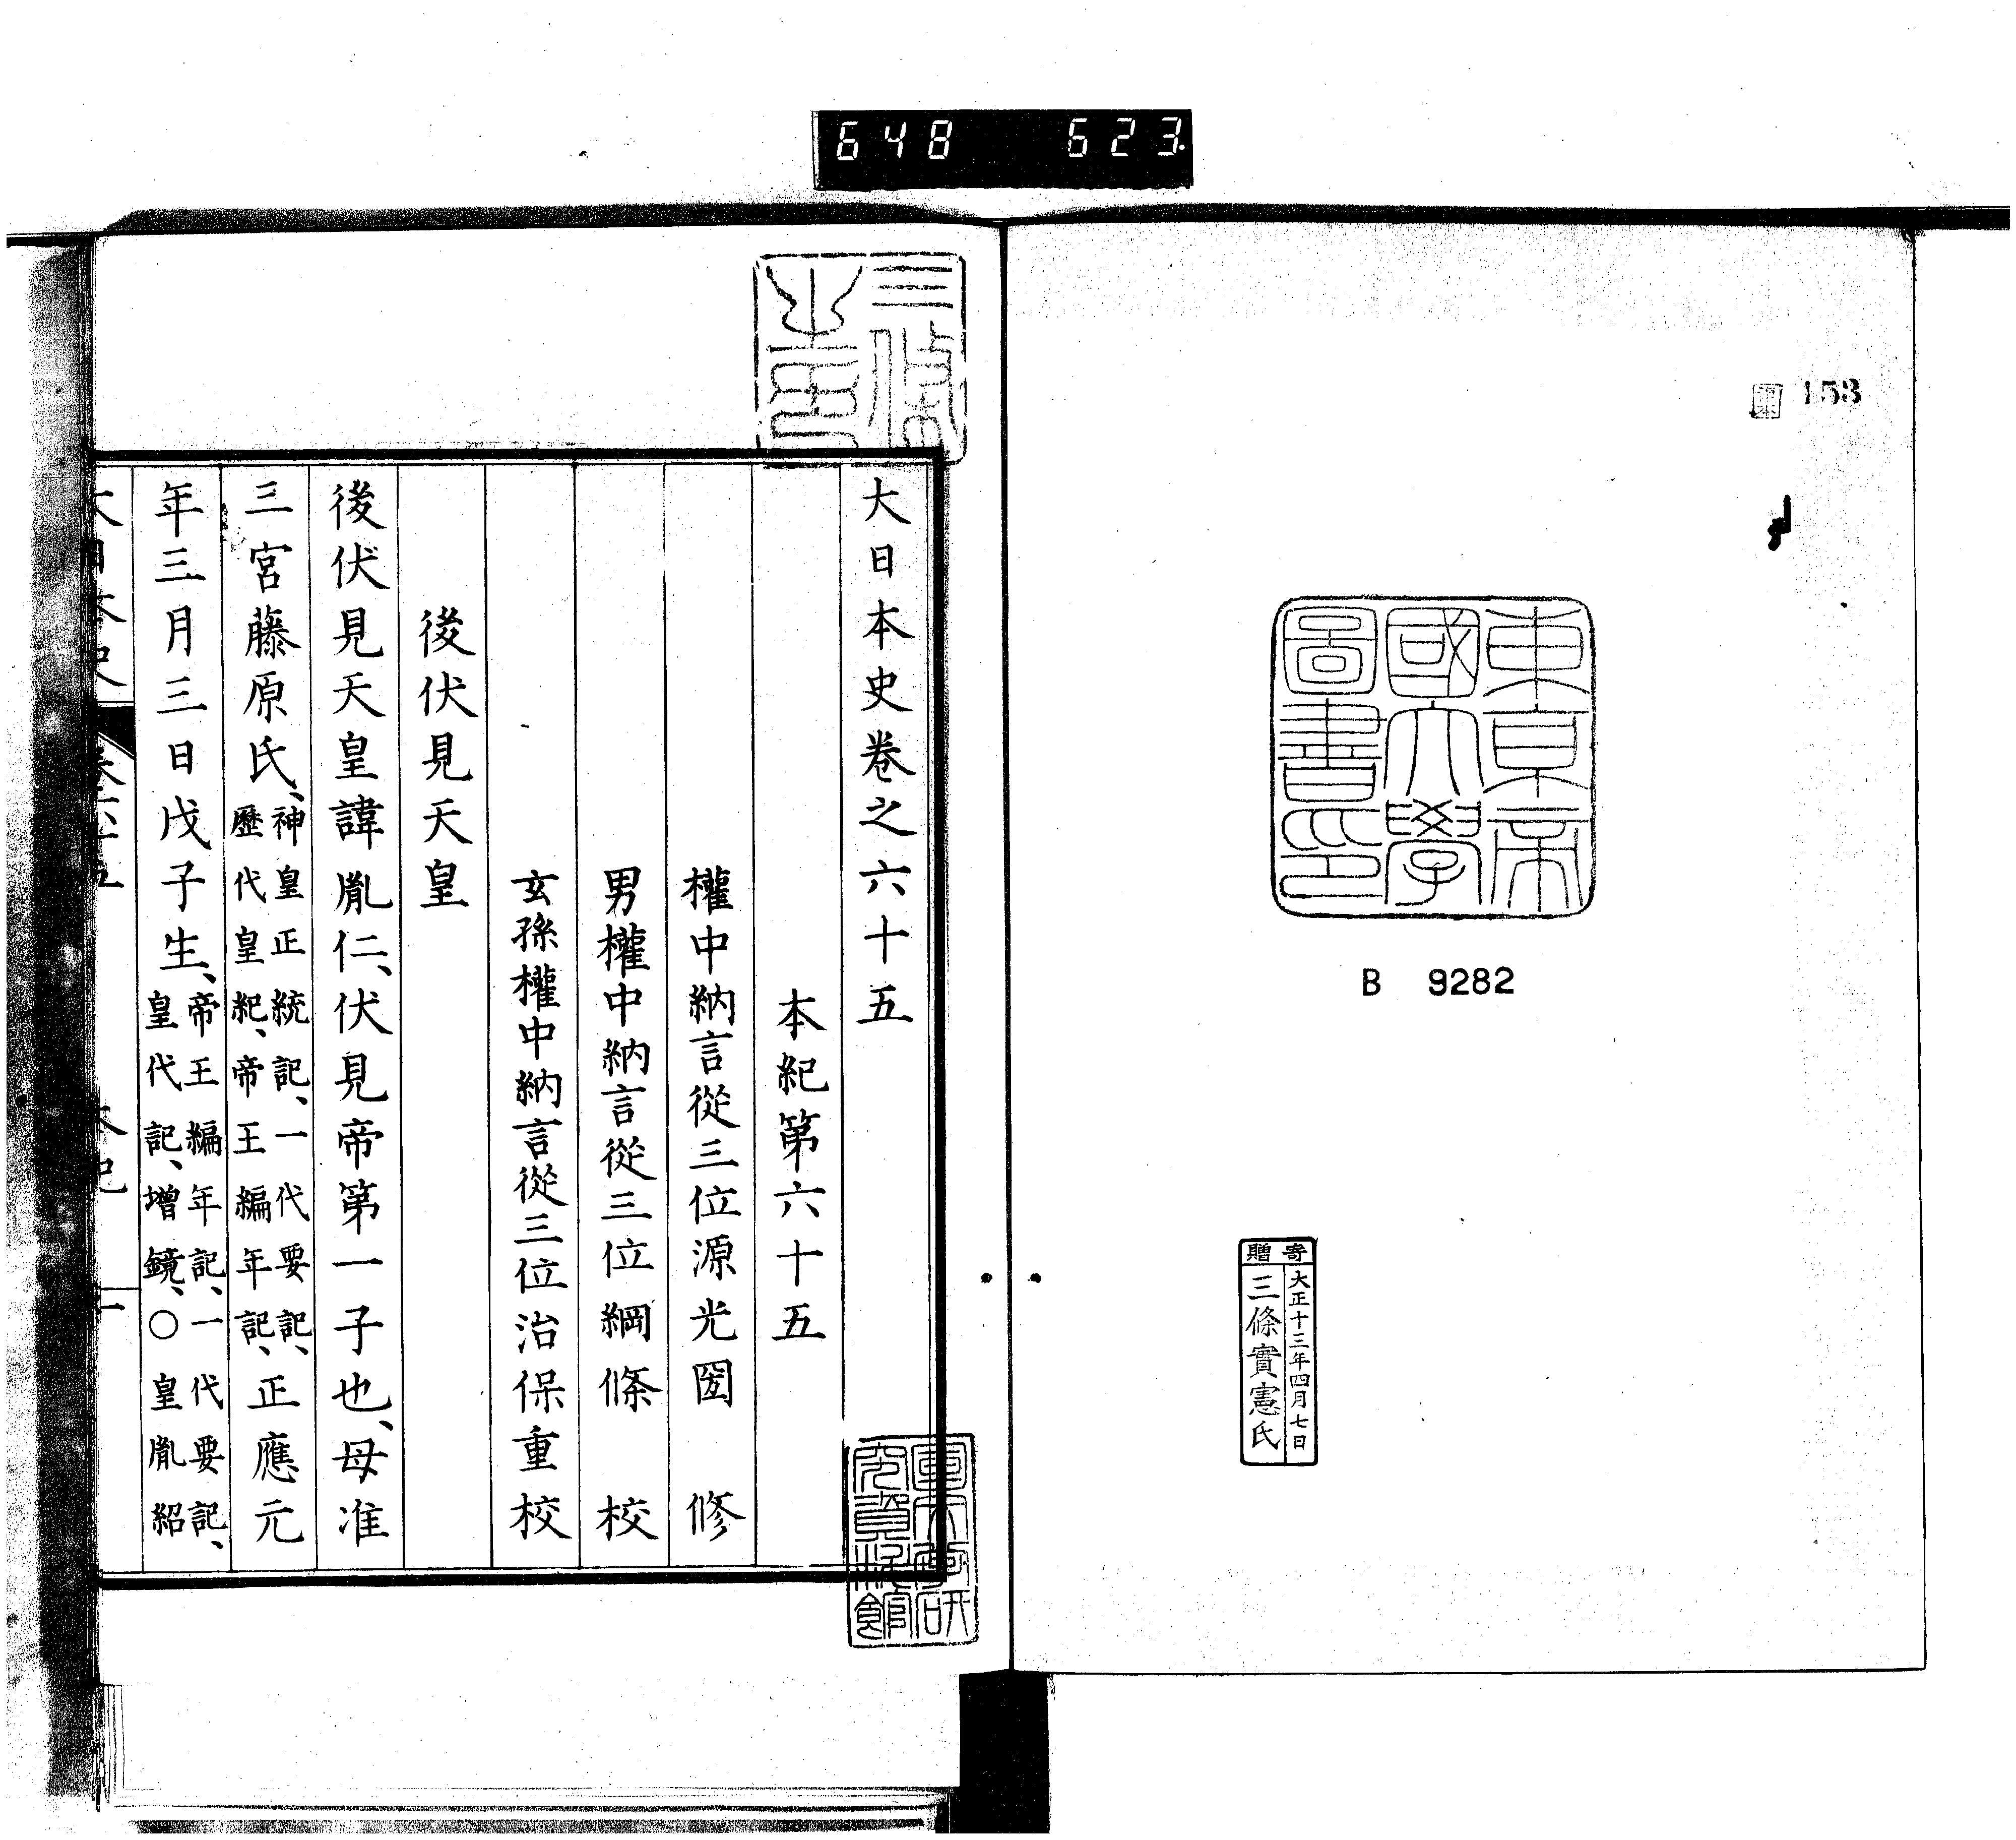 648 623.
153
東京帝
國大學
圖書印
B 9282
寄贈
大正十三年四月七日
三條實憲氏
三條
大日本史卷之六十五
本紀第六十五
權中納言從三位源光圀 修
男權中納言從三位綱條 校
玄孫權中納言從三位治保重校
後伏見天皇
後伏見天皇諱胤仁、伏見帝第一子也、母准
三宮藤原氏、神皇正統記、一代要記、歷代皇紀、帝王編年記、正應元
年三月三日戊子生、帝王編年記、一代要記、皇代記、增鏡、○皇胤紹
大日本史 卷六十五 本紀 一